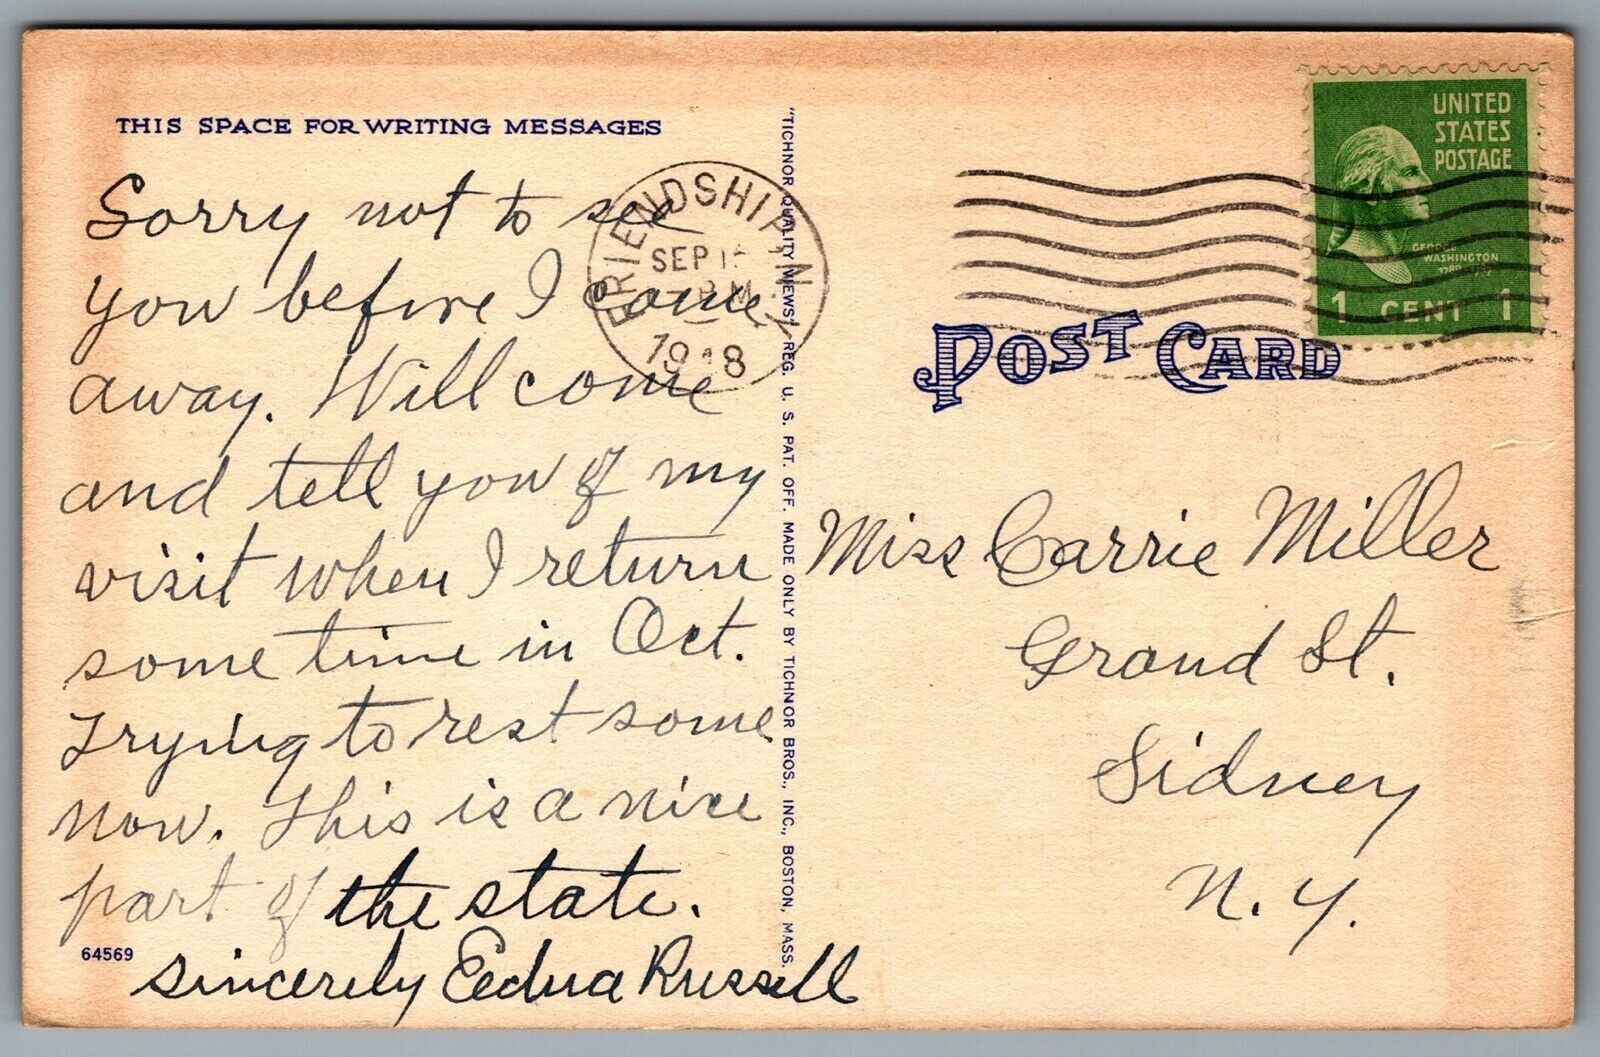 THIS SPACE FOR WRITING MESSAGES
Sorry not to see
you before I come
away. Will come
and tell you of my
visit when I return
some time in Oct.
Trying to rest some
now. This is a nice
part of the state.
sincerely Eedna Russell
64569
"TICHNOR QUALITY VIEWS" REG. U. S. PAT. OFF. MADE ONLY BY TICHNOR BROS., INC., BOSTON, MASS.
FRIENDSHIP, N.Y.
SEP
1948
UNITED
STATES
POSTAGE
GEORGE
WASHINGTON
1 CENT 1
POST CARD
Miss Carrie Miller
Grand St.
Sidney
N. Y.